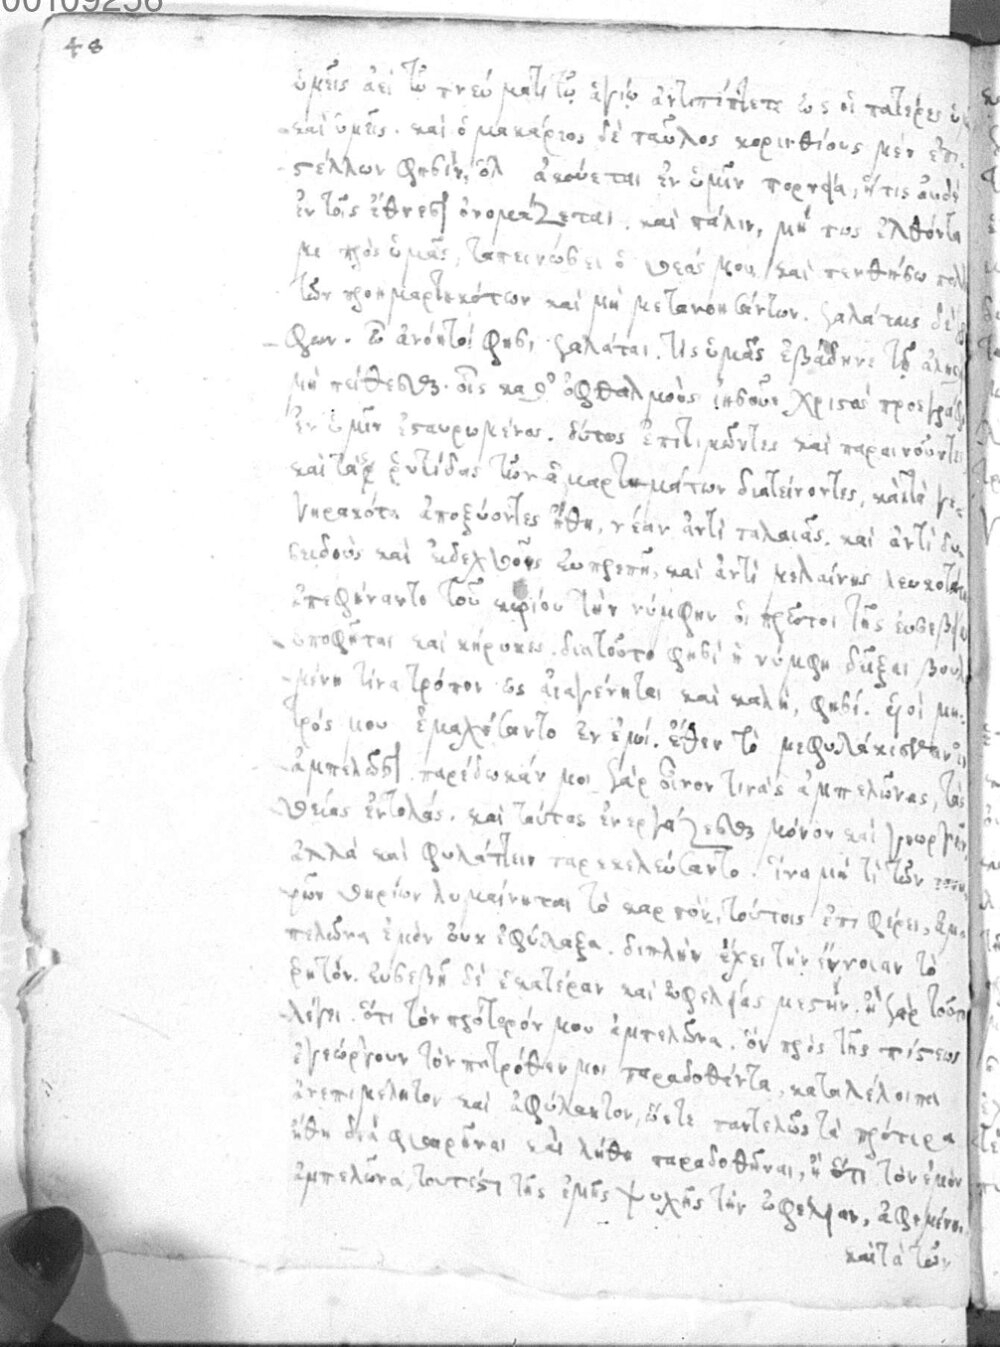 00109256
48
ὑμεῖς ἀεὶ τῷ πνεύματι τῷ ἁγίῳ ἀντιπίπτετε ὡς οἱ πατέρες ὑ
καὶ ὑμεῖς. καὶ ὁ μακάριος δὲ παῦλος κορινθίους μὲν ἐπι-
στέλλων φησὶν, ὅλ ἀκούεται ἐν ὑμῖν πορνεία, ἥτις οὐδὲ
ἐν τοῖς ἔθνεσι ὀνομάζεται. καὶ πάλιν, μή πως ἐλθόντα
με πρὸς ὑμᾶς, ταπεινώσει ὁ θεός μου, καὶ πενθήσω πολ
τῶν προημαρτηκότων καὶ μὴ μετανοησάντων. γαλάταις δὲ
φων. ὦ ἀνόητοί φησι γαλάται. τίς ὑμᾶς ἐβάσκηνε τῇ ἀλη
μὴ πείθεσθαι. οἷς κατ' ὀφθαλμοὺς ἰησοῦς χριστὸς προεγράφ
ἐν ὑμῖν ἐσταυρωμένος. οὕτως ἐπιτιμῶντες καὶ παραινοῦντες
καὶ τὰς ῥυτίδας τῶν ἁμαρτημάτων διατείνοντες, καὶ τὰ γε-
γηρακότα ἀποξύοντες ἤθη, νέαν ἀντὶ παλαιᾶς. καὶ ἀντὶ δυ
σειδοῦς καὶ εὐπρεπῆ, καὶ ἀντὶ μελαίνης λευκοτάτην
ἀπεφήναντο τοῦ κυρίου τὴν νύμφην οἱ πρῶτοι τῆς εὐσεβεί
ὑποφῆται καὶ κήρυκες. διατοῦτο φησὶ ἡ νύμφη δεῖξαι βουλ
μένη τίνα τρόπον καὶ καλὴ, φησί. υἱοὶ μη-
τρός μου ἐμαχέσαντο ἐν ἐμοί. ἔθεντό με φυλάκισσαν ἐν
ἀμπελῶσι. παρέδωκάν μοι γὰρ οἷόν τινας ἀμπελῶνας, τὰς
θείας ἐντολάς. καὶ ταύτας ἐνεργάζεσθαι μόνον καὶ γεωργεῖν
ἀλλὰ καὶ φυλάττειν παρεκελεύσαντο. ἵνα μή τι τῶν
ρῶν θηρίων λυμαίνηται τὸ καρπόν. τούτοις ἐπιφέρει, ἀμ-
πελῶνα ἐμὸν οὐκ ἐφύλαξα. διπλὴν ἔχει τὴν ἔννοιαν τὸ
ῥητόν. εὐσεβῆ δὲ ἑκατέραν καὶ ὠφελείας μεστήν. ἢ γὰρ τοῦτο
λέγει. ὅτι τὸν πρότερόν μου ἀμπελῶνα. ὃν πρὸς τῆς πίστεως
ἐγεώργουν τὸν πατρόθεν μοι παραδοθέντα, καταλέλοιπα
ἀνεπιμέλητον καὶ ἀφύλακτον, ὥστε παντελῶς τὰ πρότερα
ἤθη διαφθαρῆναι καὶ λήθῃ παραδοθῆναι, ἢ ὅτι τὸν ἐμὸν
ἀμπελῶνα, τουτέστι τῆς ἐμῆς ψυχῆς τὴν ὠφέλειαν, ἀφεμένη
καὶ τὰ τῶν